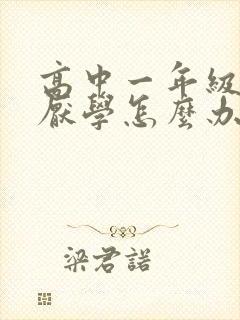 高中一年級
厭學怎麼办
梁君諾